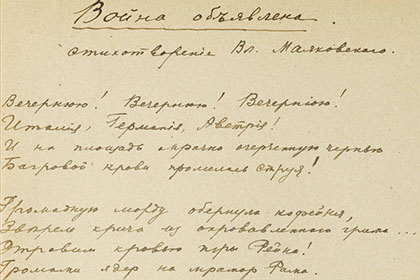 Война объявлена.
стихотворенiе Вл. Маяковскаго.
Вечернюю! Вечернюю! Вечернюю!
Италiя, Германiя, Австрiя!
И на площадь мрачно очерченную чернью
Багровой крови пролилась струя!
Громадную морду обернула кофейня,
Звѣрем крича из окровавленного грима...
Отравим кровью игры Рейна!
Громами ядер на мрамор Рима.